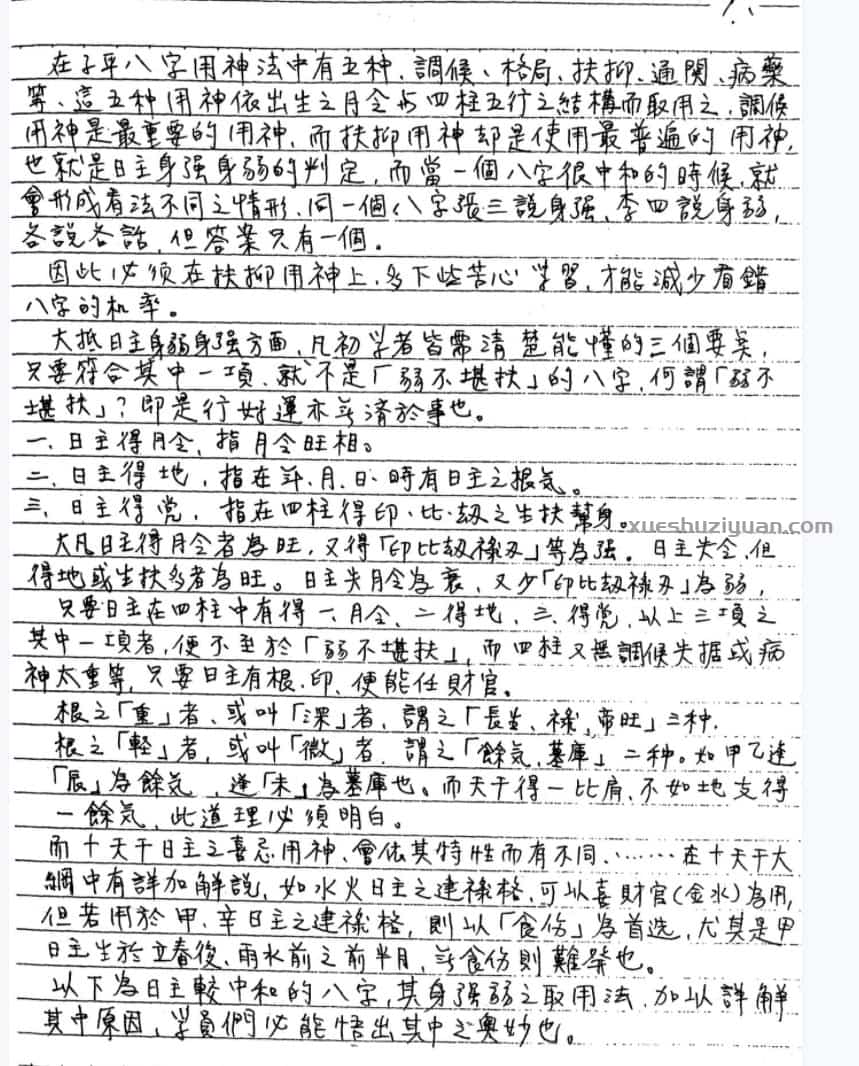 在子平八字用神法中有五种、調候、格局、扶抑、通関、病藥
等、這五种用神依出生之月令与四柱五行之結構而取用之，調候
用神是最重要的用神，而扶抑用神却是使用最普遍的用神，
也就是日主身强身弱的判定，而當一個八字很中和的時候，就
會形成看法不同之情形，同一個八字張三說身强、李四說身弱，
各說各話，但答案只有一個。
因此必须在扶抑用神上，多下些苦心学習，才能減少看錯
八字的机率。
大抵日主身弱身强方面，凡初学者皆需清楚能懂的三個要点，
只要符合其中一項，就不是「弱不堪扶」的八字，何謂「弱不
堪扶」？即是行好運亦無濟於事也。
一、日主得月令，指月令旺相。
二、日主得地，指在年、月、日、時有日主之根気。
三、日主得党，指在四柱得印、比、刼之生扶幫身。
xueshuziyuan.com
大凡日主得月令者為旺，又得「印比刼祿刃」等為强。日主失令，但
得地或生扶多者為旺。日主失月令為衰，又少「印比刼祿刃」為弱，
只要日主在四柱中有得一、月令、二得地、三、得党，以上三項之
其中一項者，便不至於「弱不堪扶」，而四柱又無調候失据或病
神太重等，只要日主有根、印，便能任財官。
根之「重」者，或叫「深」者，謂之「長生、祿、帝旺」三种，
根之「軽」者，或叫「微」者，謂之「餘気、墓庫」二种。如甲乙逢
「辰」為餘気，逢「未」為墓庫也。而天干得一比肩，不如地支得
一餘気，此道理必须明白。
而十天干日主之喜忌用神、會依其特性而有不同，……在十天干大
綱中有詳加解說，如水火日主之建祿格，可以喜財官(金水)為用，
但若用於甲、辛日主之建祿格，則以「食伤」為首选，尤其是甲
日主生於立春後、雨水前之前半月，無食伤則難發也。
以下為日主較中和的八字，其身强弱之取用法，加以詳解
其中原因，学員們必能悟出其中之奥妙也。